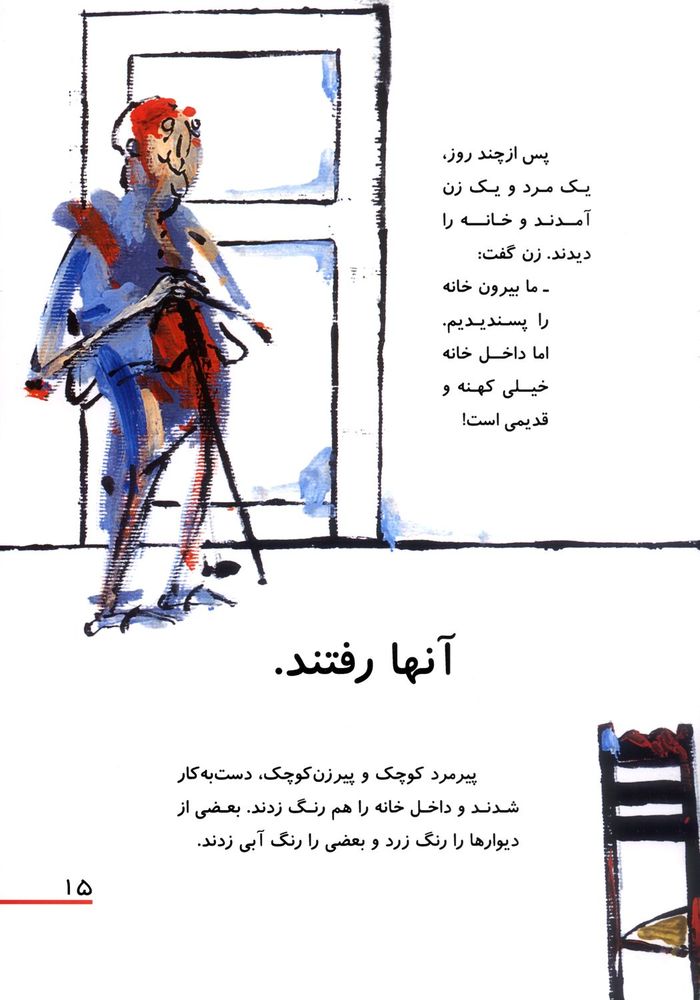 پس ازچند روز،
یک مرد و یک زن
آمدند و خانه را
دیدند. زن گفت:
ـ ما بیرون خانه
را پسندیدیم.
اما داخل خانه
خیلی کهنه و
قدیمی است!
آنها رفتند.
پیرمرد کوچک و پیرزن‌کوچک، دست‌به‌کار
شدند و داخل خانه را هم رنگ زدند. بعضی از
دیوارها را رنگ زرد و بعضی را رنگ آبی زدند.
۱۵